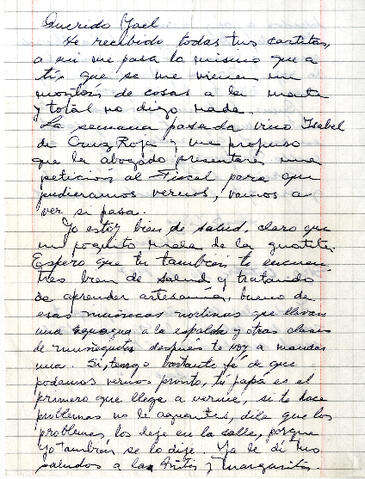 Querido Yael
He recibido todas tus cartitas,
a mi me pasa lo mismo que a
ti, que se me vienen un
montón de cosas a la mente
y total no digo nada.
La semana pasada vino Isabel
de Cruz Roja y me propuso
que la abogado presentara una
petición al Fiscal para que
pudieramos vernos, vamos a
ver si pasa.
Yo estoy bien de salud, claro que
un poquito mala de la guatita.
Espero que tu tambien te encuen
tres bien de salud y tratando
de aprender artesania, bueno de
esas muñecas nortinas que llevan
una guagua a la espalda y otras clases
de muñequitos después te voy a mandar
una. Si, tengo bastante fé de que
podamos vernos pronto, tu papá es el
primero que llega a verme, si te hace
problemas no le aguantes, dile que los
problemas los deje en la calle, porque
yo tambien se lo dije. Ya le dí tus
saludos a la y Margarita.